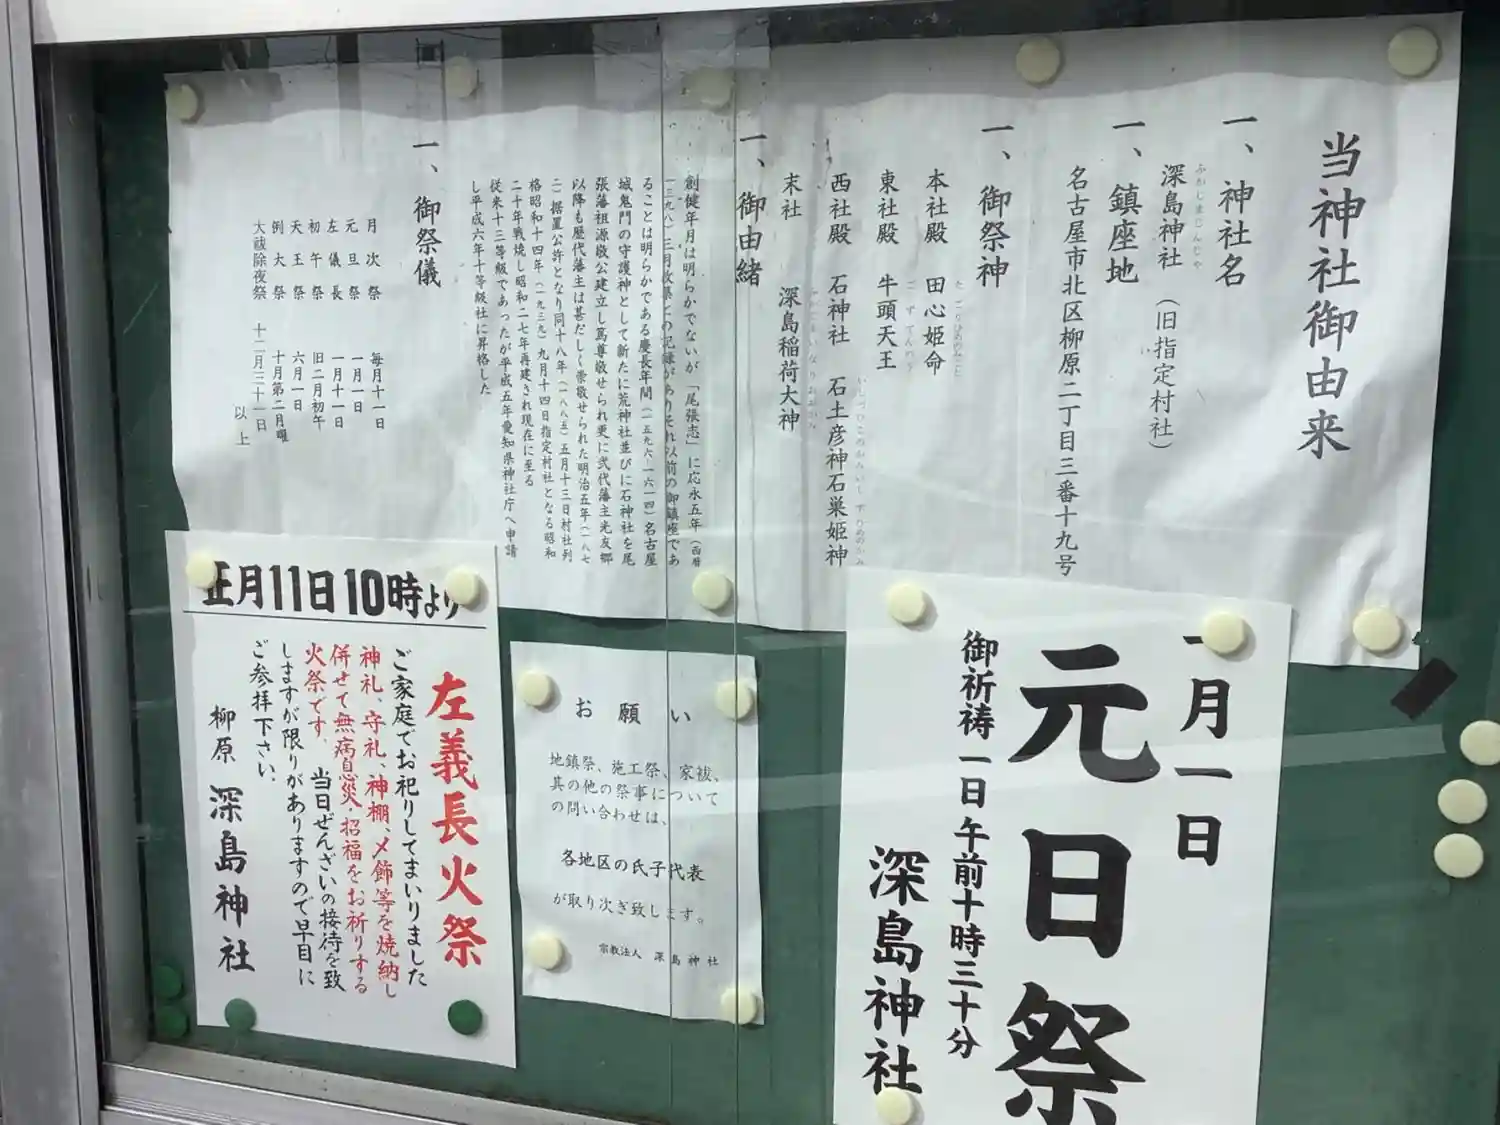 当神社御由来
一、神社名
ふかしまじんじゃ
深島神社（旧指定村社）
一、鎮座地
名古屋市北区柳原二丁目三番十九号
一、御祭神
本社殿 田心姫命
東社殿 牛頭天王
西社殿 石神社 石土彦神石巣姫神
末社 深島稲荷大神
一、御由緒
創健年月は明らかでないが「尾張志」に応永五年（西暦
一三九八）三月改築との記録がありそれ以前の御鎮座であ
ることは明らかである慶長年間（一五九六-一六一四）名古屋
城鬼門の守護神として新たに荒神社並びに石神社を尾
張藩祖源敬公建立し篤尊敬せられ更に弐代藩主光友郷
以降も歴代藩主は甚だしく崇敬せられた明治五年（一八七
二）据置公許となり同十八年（一八八五）五月十三日村社列
格昭和十四年（一九三九）九月十四日指定村社となる昭和
二十年戦焼し昭和二七年再建され現在に至る
従来十三等級であったが平成五年愛知県神社庁へ申請
し平成六年十等級社に昇格した
一、御祭儀
月次祭 毎月十一日
元旦祭 一月一日
左儀長 一月十一日
初午祭 旧二月初午
天王祭 六月一日
例大祭 十月第二月曜
大祓除夜祭 十二月三十一日
以上
正月11日10時より
左義長火祭
ご家庭でお祀りしてまいりました
神札、守札、神棚、〆飾等を焼納し
併せて無病息災・招福をお祈りする
火祭です。 当日ぜんざいの接待を致
しますが限りがありますので早目に
ご参拝下さい。
柳原 深島神社
お願い
地鎮祭、施工祭、家祓、
其の他の祭事について
の問い合わせは、
各地区の氏子代表
が取り次ぎ致します。
宗教法人 深島神社
一月一日
元日祭
御祈祷 一日午前十時三十分
深島神社